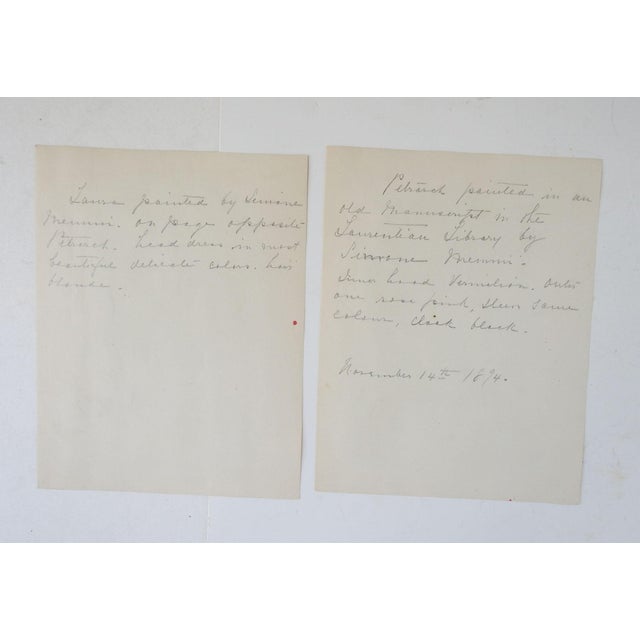 Laura painted by Simone
Memmi. on page opposite
Petrarch. head dress in most
beautiful delicate colors. hair
blonde.
Petrarch painted in an
old Manuscript in the
Laurentian Library by
Simone Memmi.
Inner hood Vermilion. outer
one rose pink, sleeve same
colour, cloak black.
November 14th 1894.